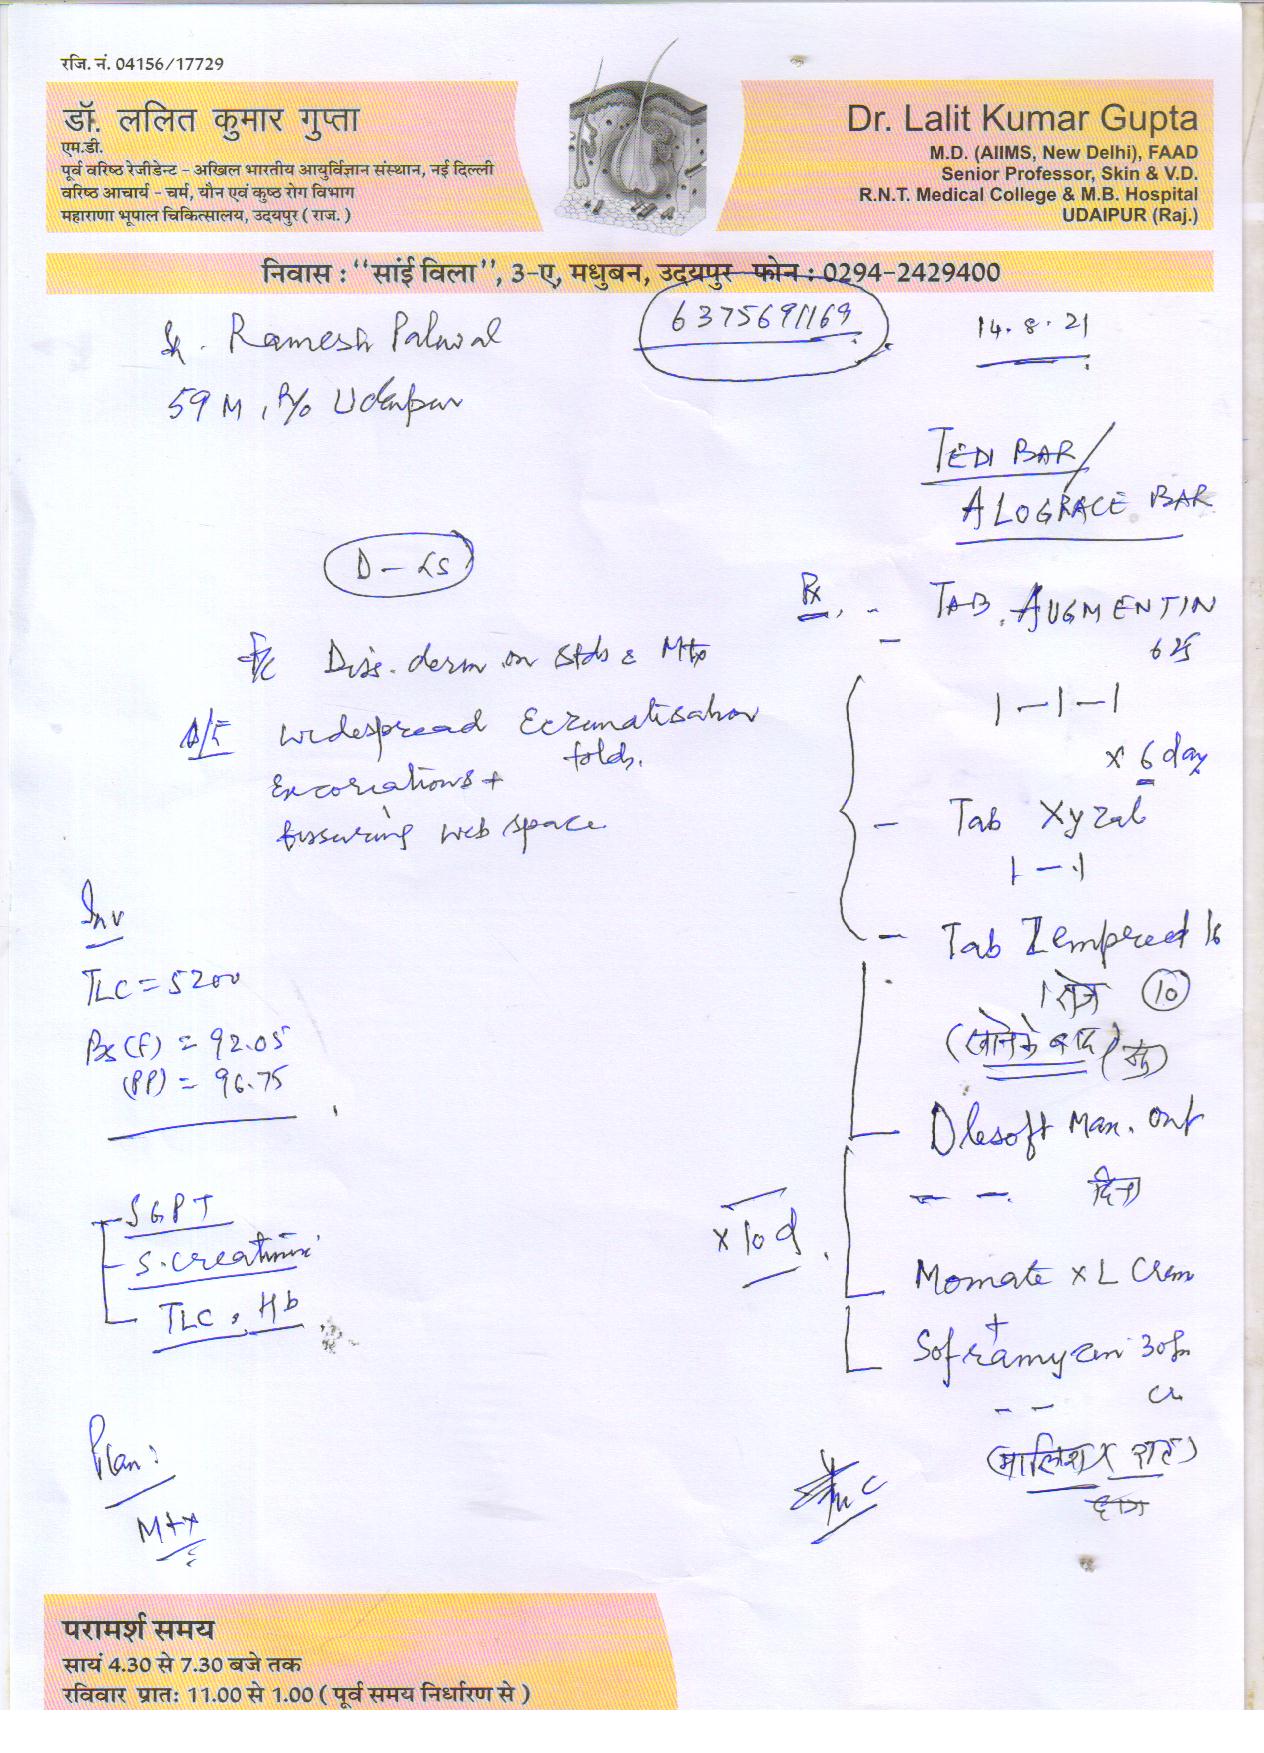 रजि. नं. 04156/17729
डॉ. ललित कुमार गुप्ता
एम.डी.
पूर्व वरिष्ठ रेजीडेन्ट - अखिल भारतीय आयुर्विज्ञान संस्थान, नई दिल्ली
वरिष्ठ आचार्य - चर्म, यौन एवं कुष्ठ रोग विभाग
महाराणा भूपाल चिकित्सालय, उदयपुर ( राज. )
Dr. Lalit Kumar Gupta
M.D. (AIIMS, New Delhi), FAAD
Senior Professor, Skin & V.D.
R.N.T. Medical College & M.B. Hospital
UDAIPUR (Raj.)
निवास : "सांई विला", 3-ए, मधुबन, उदयपुर फोन : 0294-2429400
6375691169
14.8.21
Ramesh Paliwal
59 M, R/o Udaipur
TEDI BAR/
ALOGRACE BAR
Rx
TAB. AUGMENTIN
625
1-1-1
x 6 days
Diss. derm on Stds & Mtx
O/E widespread Eczematisation
folds.
Excoriations +
fissuring web space
Tab Xyzal
1-1
Tab Zempred 16
1 रोज (10)
(खाने के बाद)
Dlesoft Max. Ont
Inv
TLC = 5200
BS (F) = 92.05
(PP) = 96.75
SGPT
S. creatinine
TLC, Hb
x 10 d
Momate XL Crem
+
Soframycin 30gm
(मालिश x
Plan:
Mtx
परामर्श समय
सायं 4.30 से 7.30 बजे तक
रविवार प्रातः 11.00 से 1.00 ( पूर्व समय निर्धारण से )